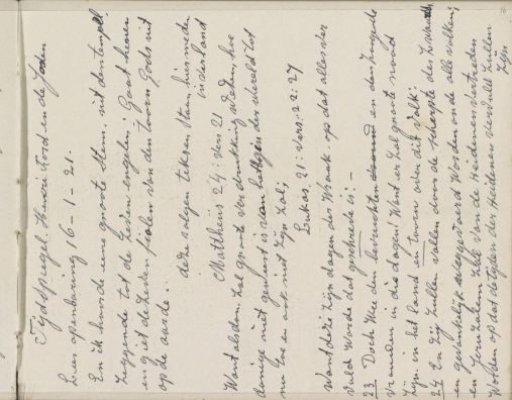 Tijdspiegel. Henri Ford en de Joden
Lees openbaring 16-1-21.
En ik hoorde eene groote stem, uit den tempel.
Zeggende tot de Zeven engelen; Gaat henen
en giet de Zeven fiolen van den toorn Gods uit
op de aarde
deze zelgen teksen staan hier neder
in verband
Mattheüs 24: vers 21
Want alsdan zal groote verdrukking wezen, hoe
danige niet geweest is van het begin der wereld tot
nu toe en ook niet zijn zal;
Lukas. 21: vers. 22: 27
Want deze zijn dagen der Wraak. op dat alles ver
vuld worde dat geschreven is: -
23 Doch Wee den bevruchten en den Zogende
Vrouwen in die dagen! Want er zal groote nood
Zijn in het land en toorn over dit Volk:
24 En zij zullen vallen door de scherpte des Zwaards,
en gevankelijk weggevoerd worden onder alle volken;
en Jeruzalem zal van de Heidenen vertreden
Worden op dat de tijden der Heidenen vervuld zullen
Zijn